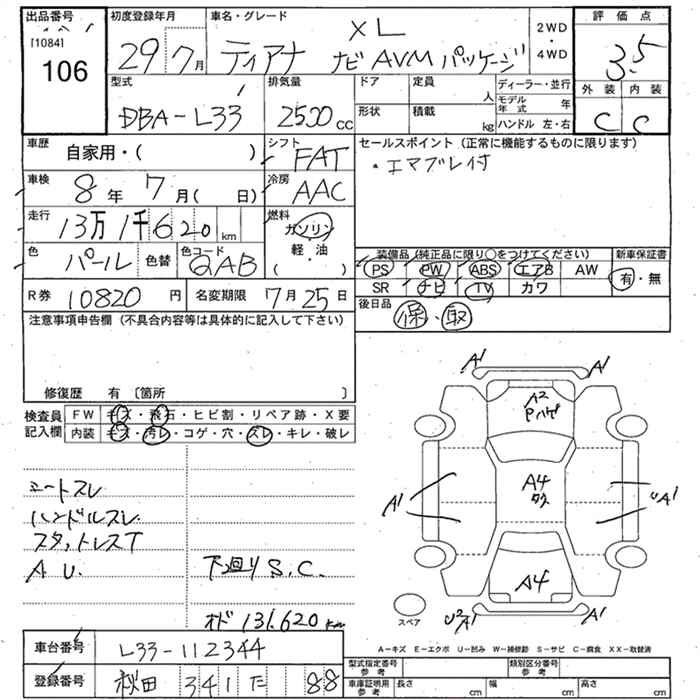 出品番号 初度登録年月 車名・グレード 2WD・4WD 評価点
[1084] 106 29年7月 ティアナ XL ナビAVMパッケージ 3.5
外装 内装
C C
型式 排気量 ドア 定員 人 ディーラー・並行
DBA-L33 2500cc 形状 積載 kg モデル年式 年
ハンドル 左・右
車歴 自家用・( ) シフト FAT セールスポイント(正常に機能するものに限ります)
・エマブレ付
車検 8年7月( 日) 冷房 AAC
走行 13万1千620km 燃料 ガソリン
軽・油
( )
色 パール 色替 色コード QAB
装備品(純正品に限り○をつけてください) 新車保証書
PS PW ABS エアB AW 有・無
SR ナビ TV カワ
R券 10820円 名変期限 7月25日 後日品 保・取
注意事項申告欄(不具合内容等は具体的に記入して下さい)
修復歴 有〔箇所 〕
検査員 FW キズ・飛石・ヒビ割・リペア跡・X要
記入欄 内装 キズ・汚レ・コゲ・穴・スレ・キレ・破レ
シートスレ
ハンドルスレ
スタットレスT
A U. 下廻りS.C.
オド 131.620km
A1 A1
A2
Pハゲ
A1 A4 UA1
A4
U2A1 A1
スペア
A-キズ E-エクボ U-凹み W-補修跡 S-サビ C-腐食 XX-取替済
車台番号 L33-112344
登録番号 秋田 341 た 88
型式指定番号 参考 類別区分番号 参考
車庫証明用 参考 長さ cm 幅 cm 高さ cm